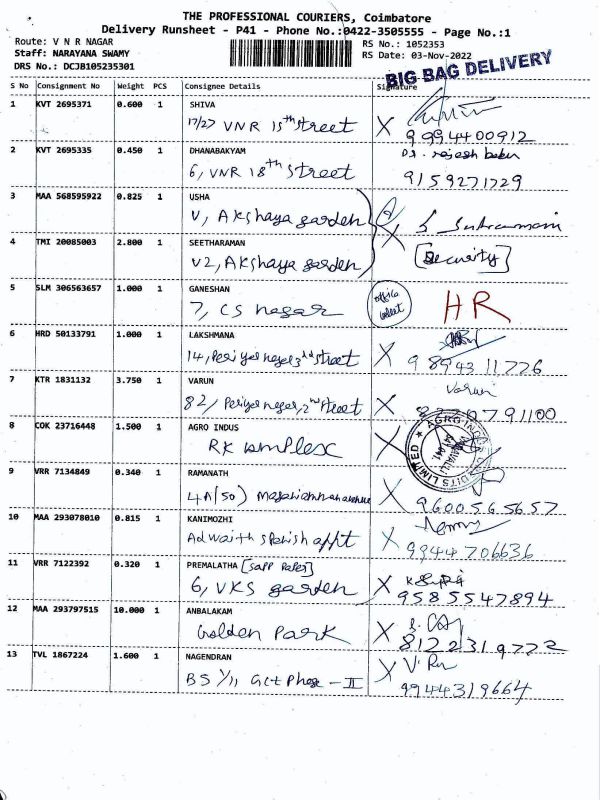 THE PROFESSIONAL COURIERS, Coimbatore
Delivery Runsheet - P41 - Phone No.:0422-3505555 - Page No.:1
Route: V N R NAGAR
Staff: NARAYANA SWAMY
DRS No.: DCJB105235301
RS No.: 1052353
RS Date: 03-Nov-2022
BIG BAG DELIVERY
S No Consignment No Weight PCS Consignee Details Signature
1 KVT 2695371 0.600 1 SHIVA
17/27 VNR 15th street X 9994400912
2 KVT 2695335 0.450 1 DHANABAKYAM
6, VNR 18th street 9159271729
3 MAA 568595922 0.825 1 USHA
V, Akshaya garden
4 TMI 20085003 2.800 1 SEETHARAMAN X [Security]
V2, Akshaya garden
5 SLM 306563657 1.000 1 GANESHAN office
7, CS nagar HR
6 HRD 50133791 1.000 1 LAKSHMANA
14, Periyar nagar 3rd street X 9894311726
7 KTR 1831132 3.750 1 VARUN Varun
82/ Periyar nagar, 2nd street X
8 COK 23716448 1.500 1 AGRO INDUS
RK complex X
AGRO INDUS DITS LIMITED
9 VRR 7134849 0.340 1 RAMANATH
4A(50) X 9600565657
10 MAA 293078010 0.815 1 KANIMOZHI
Adwaith appt X 9944706636
11 VRR 7122392 0.320 1 PREMALATHA
6, VKS garden X 9585547894
12 MAA 293797515 10.000 1 ANBALAKAM
Golden Park X 8122319722
13 TVL 1867224 1.600 1 NAGENDRAN X
BS 1/11 Gct Phase - II 9944319664